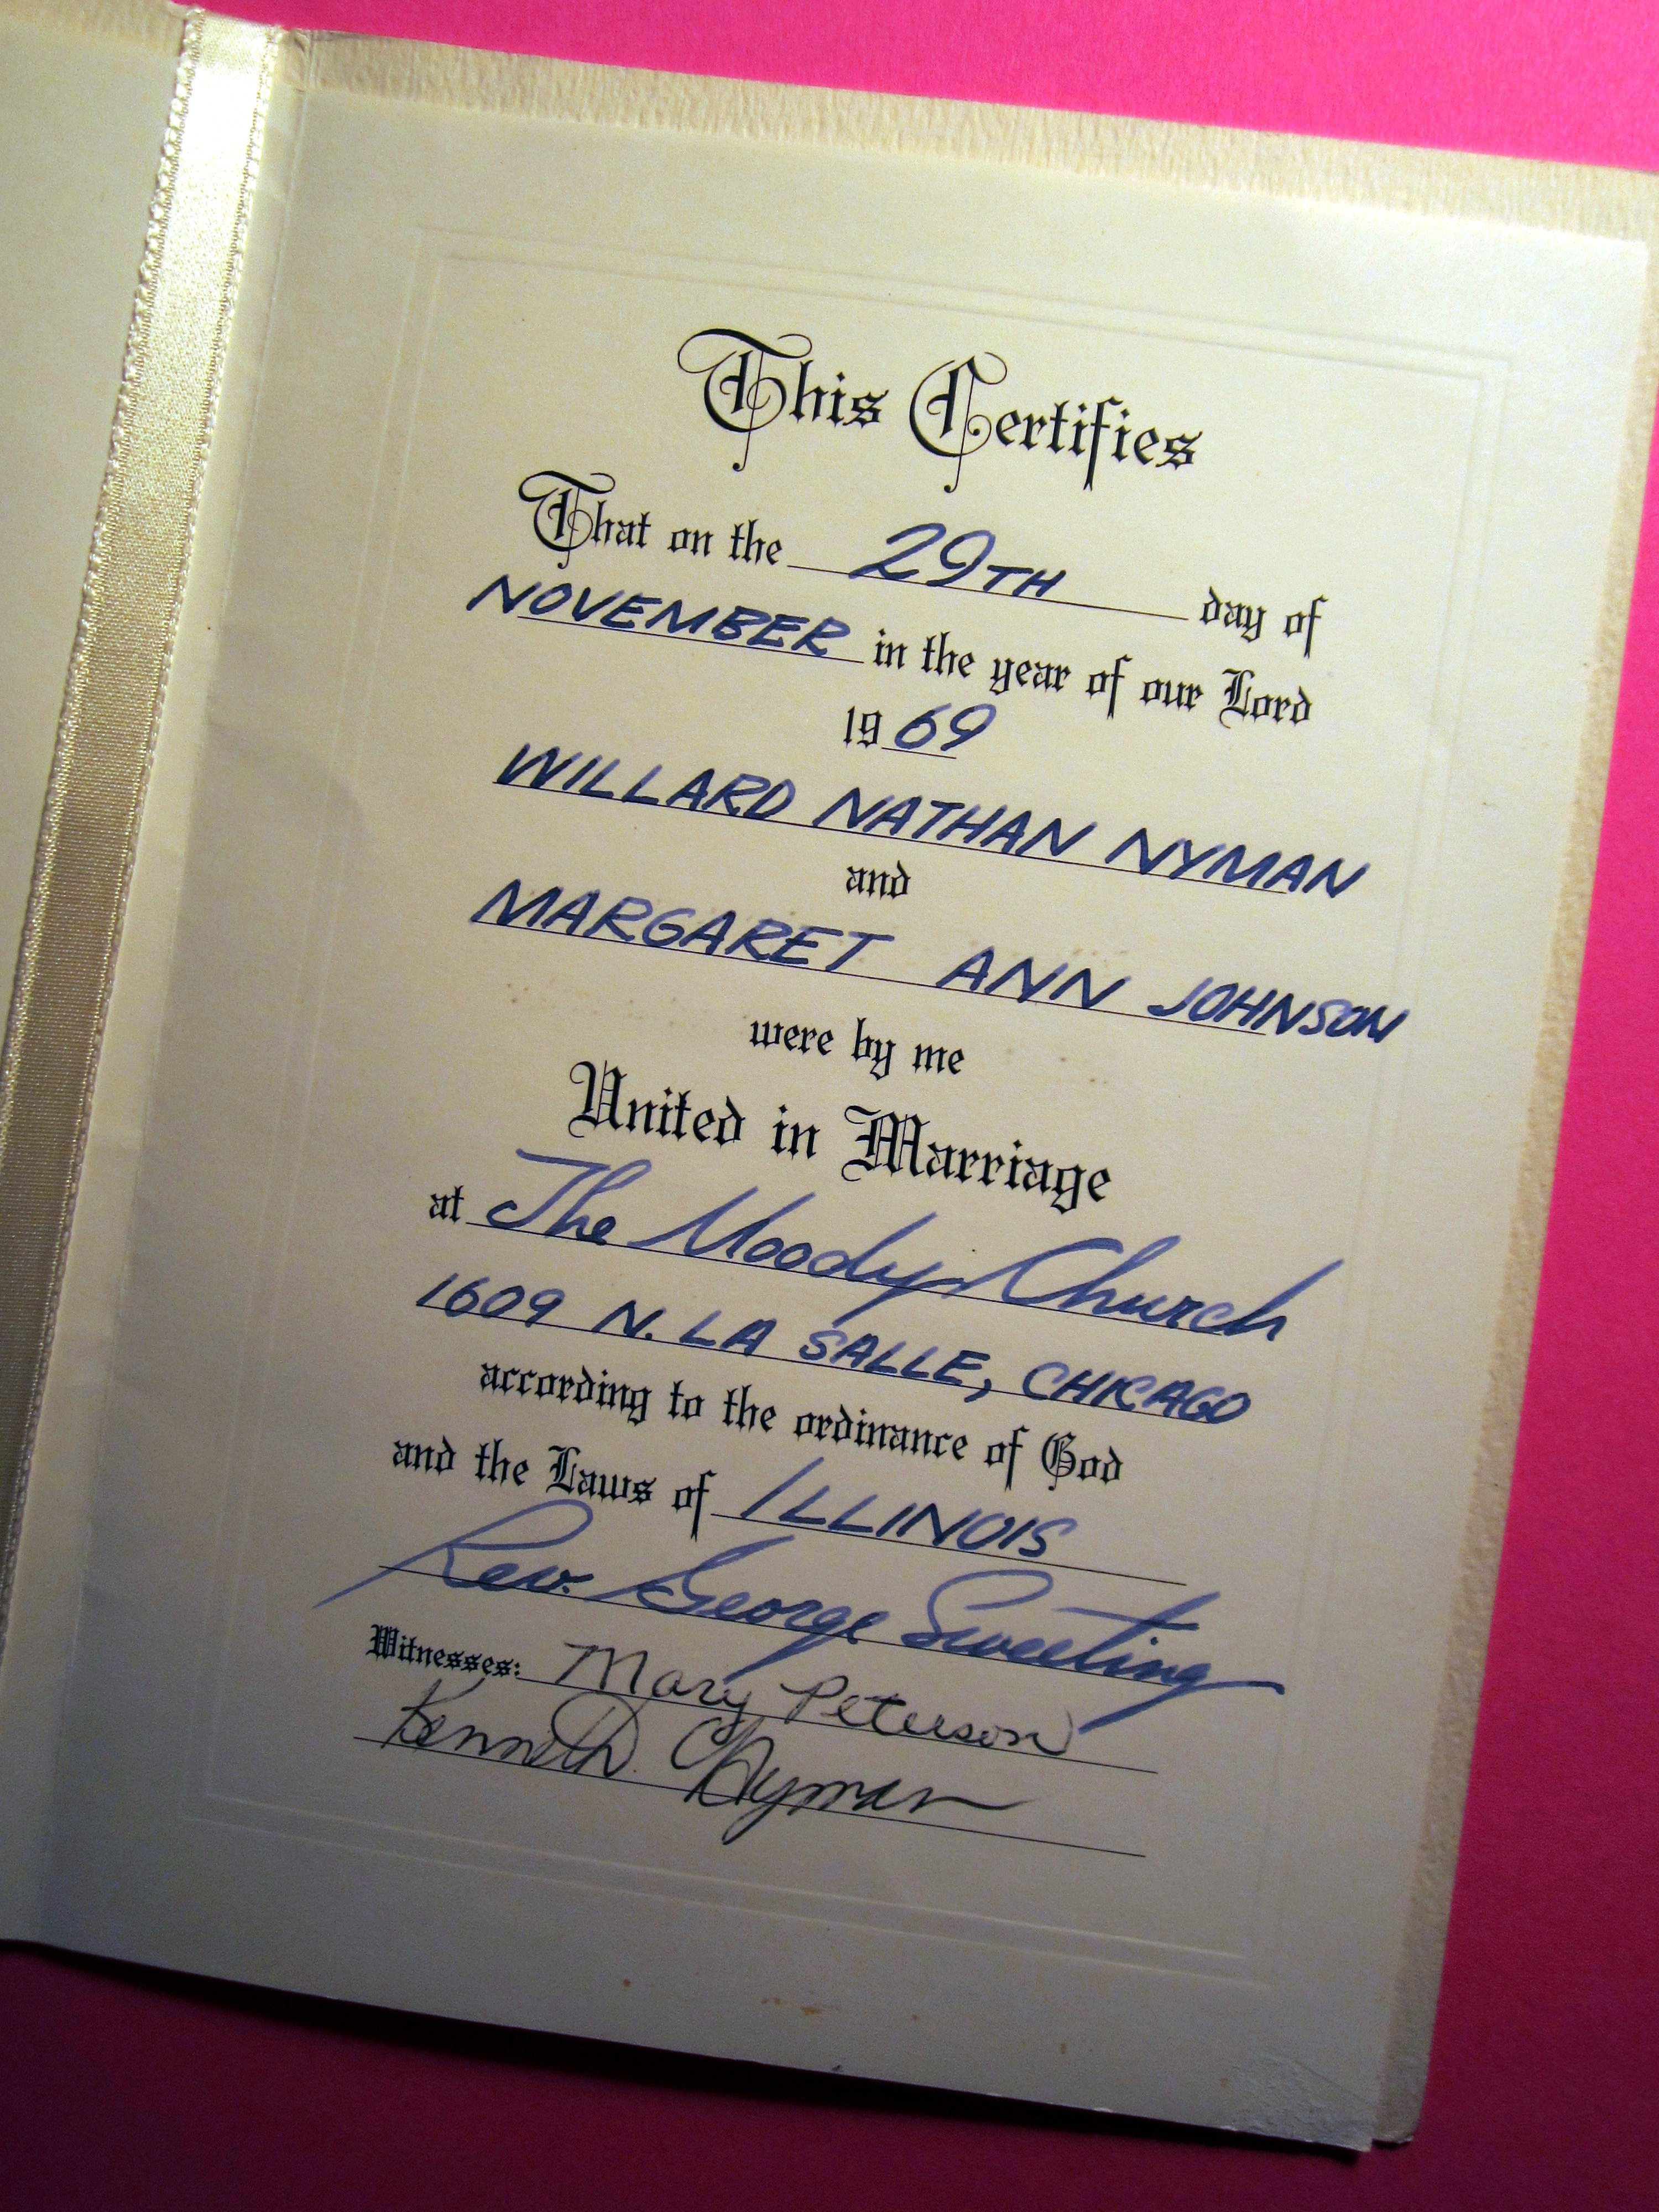 This Certifies
That on the 29TH day of
NOVEMBER in the year of our Lord
1969
WILLARD NATHAN NYMAN
and
MARGARET ANN JOHNSON
were by me
United in Marriage
at The Moody Church
1609 N. LA SALLE, CHICAGO
according to the ordinance of God
and the Laws of ILLINOIS
Rev. George Sweeting
Witnesses: Mary Peterson
Kenneth Nyman